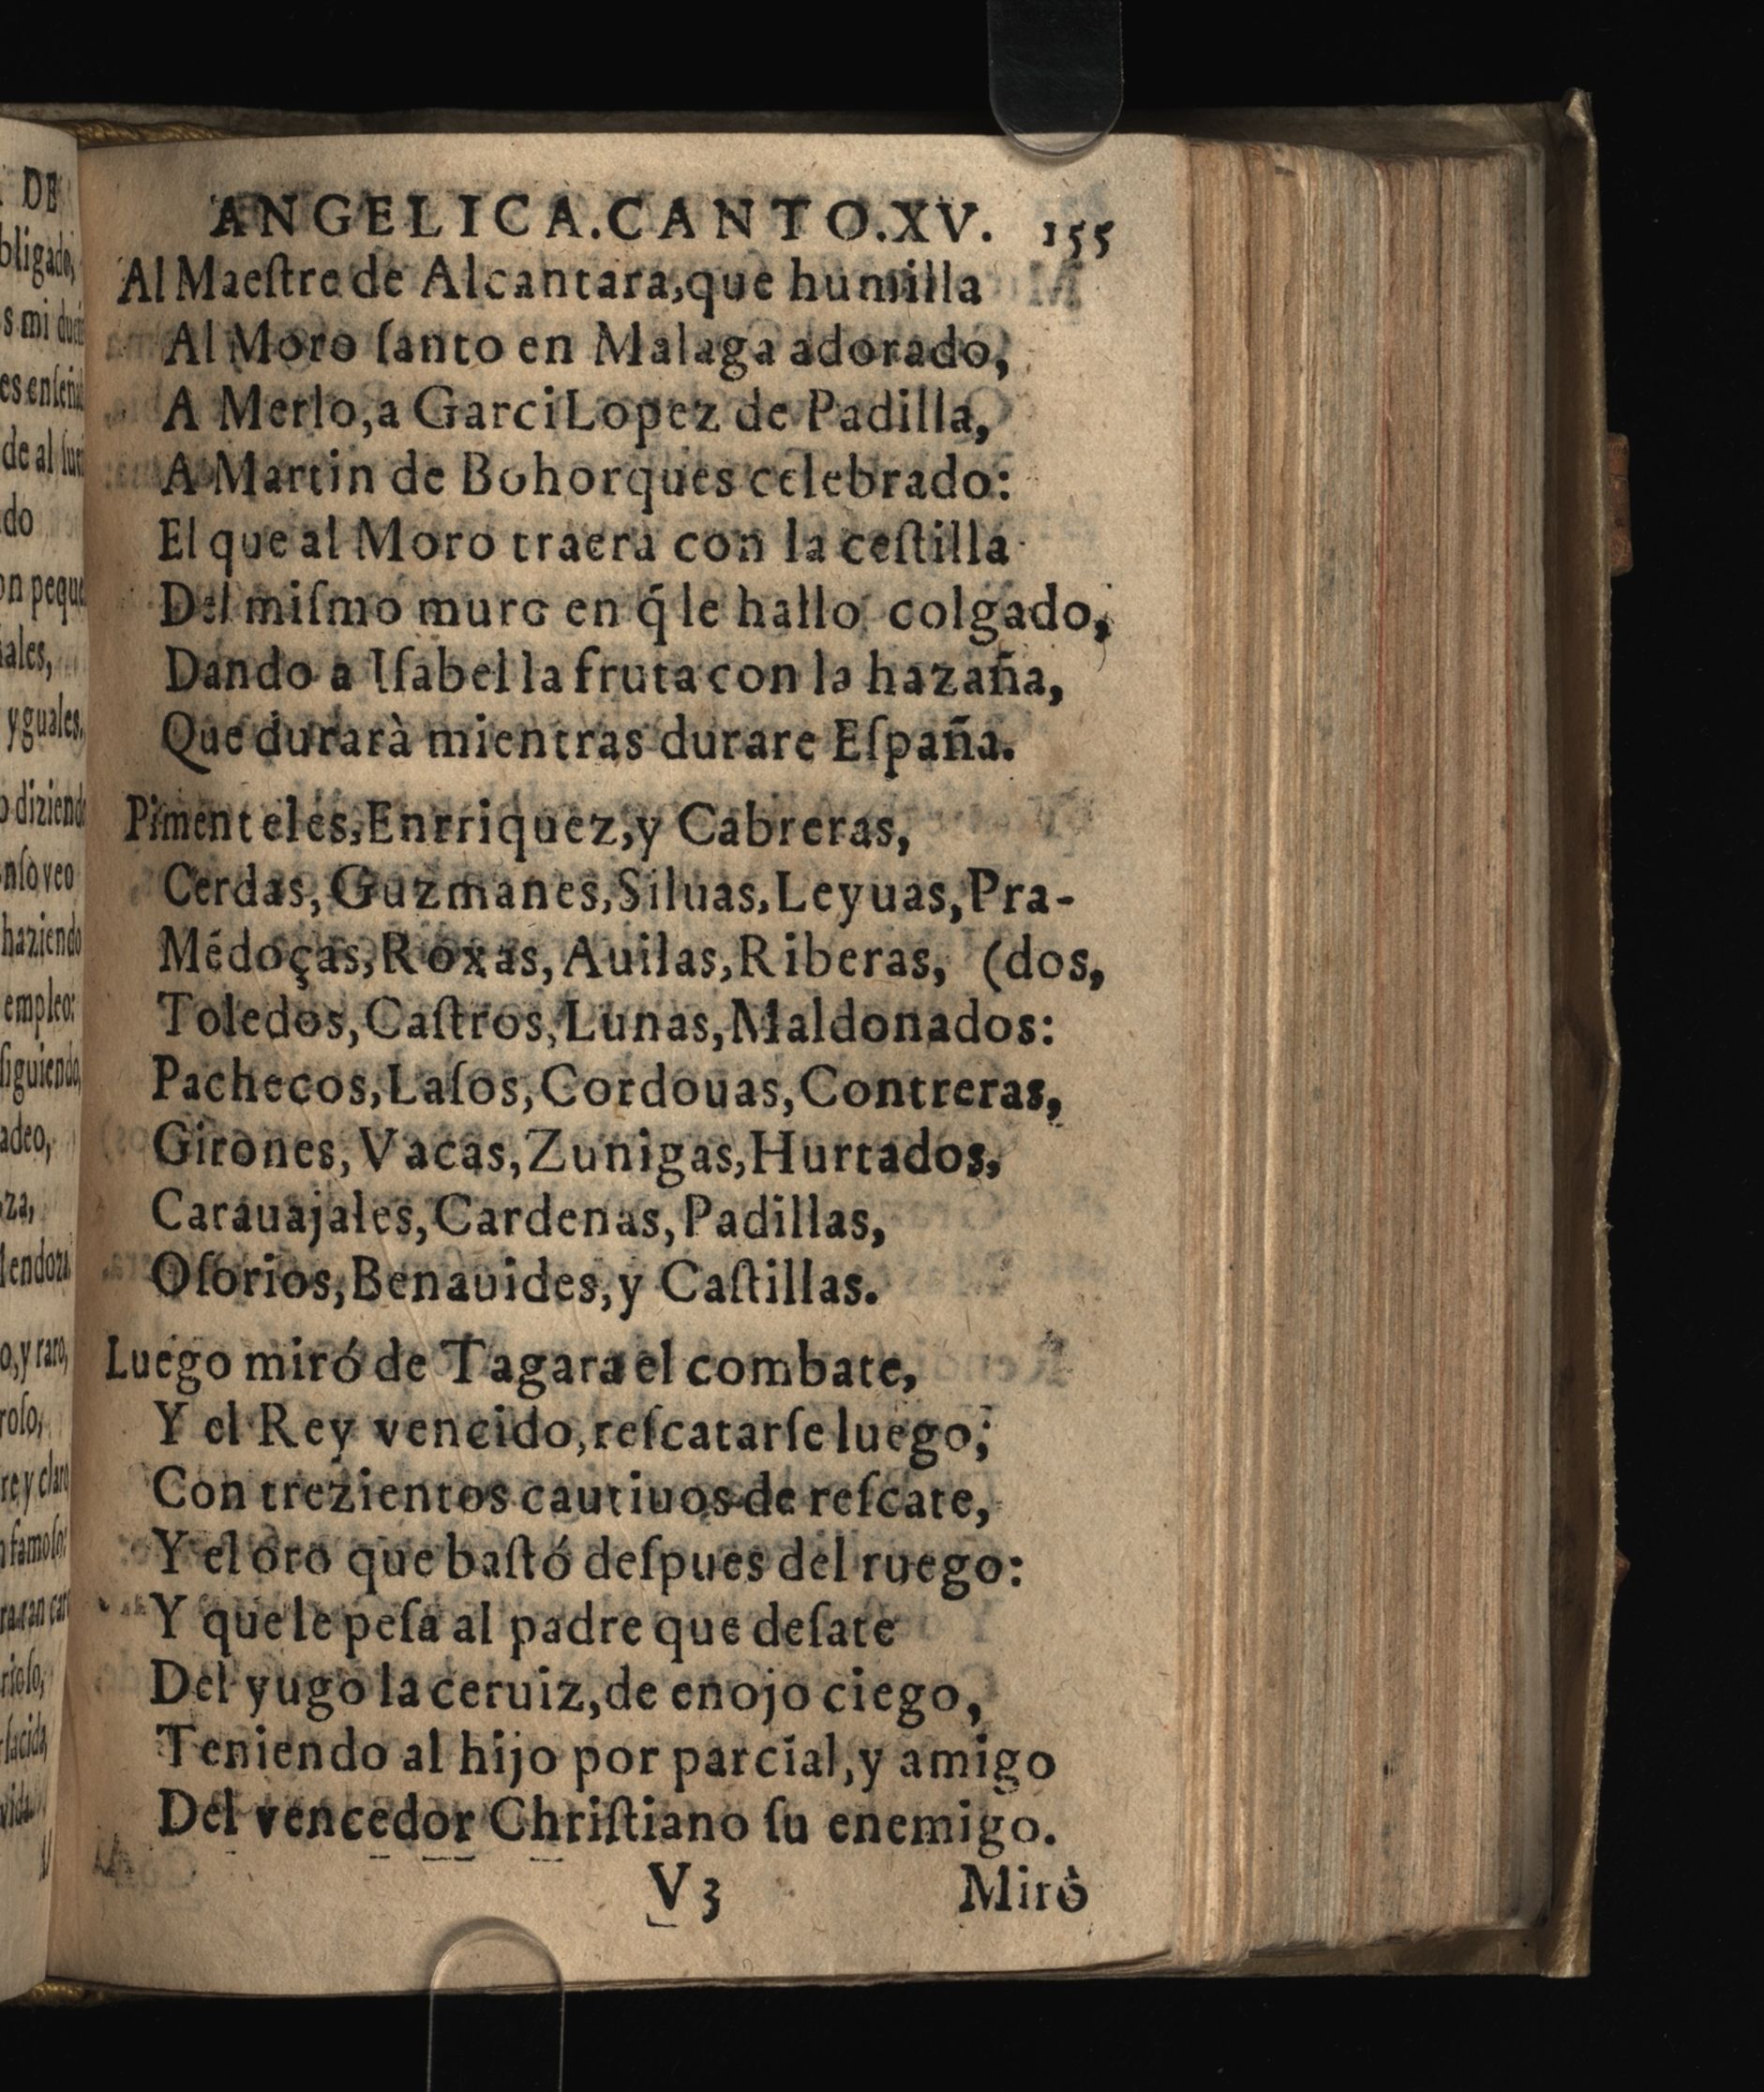 ANGELICA.CANTO.XV. 155
Al Maeſtre de Alcantara,que humilla
Al Moro ſanto en Malaga adorado,
A Merlo,a Garci Lopez de Padilla,
A Martin de Bohorques celebrado:
El que al Moro traera con la ceſtilla
Del miſmo muro en q́ le hallo colgado,
Dando a Iſabel la fruta con la hazaña,
Que durarà mientras durare Eſpaña.
Pimenteles,Enrriquez,y Cabreras,
Cerdas, Guzmanes,Siluas,Leyuas,Pra-
Médoças,Roxas, Auilas,Riberas, (dos,
Toledos,Caſtros,Lunas,Maldonados:
Pachecos,Laſos,Cordouas,Contreras,
Girones,Vacas,Zunigas,Hurtados,
Carauajales,Cardenas,Padillas,
Oſorios,Benauides,y Caſtillas.
Luego miró de Tagara el combate,
Y el Rey vencido,reſcatarſe luego;
Con trezientos cautiuos de reſcate,
Y el oro que baſtó deſpues del ruego:
Y que le peſa al padre que deſate
Del yugo la ceruiz,de enojo ciego,
Teniendo al hijo por parcial,y amigo
Del vencedor Chriſtiano ſu enemigo.
V3 Mirò
DE
do
ales,
yguales,
haziendo
empleo: